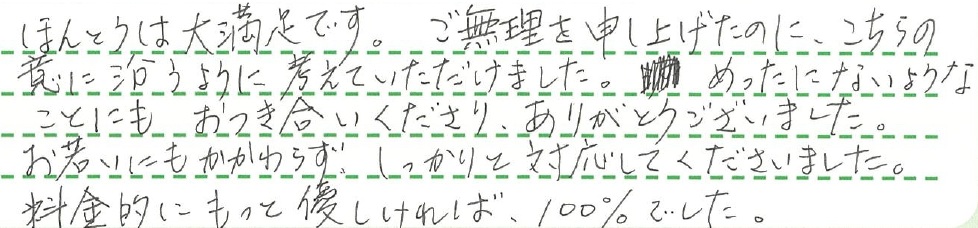 ほんとうは大満足です。 ご無理を申し上げたのに、こちらの
意に沿うように考えていただけました。 めったにないような
ことにも おつき合いくださり、ありがとうございました。
お若いにもかかわらず、しっかりと対応してくださいました。
料金的にもっと優しければ、100%でした。